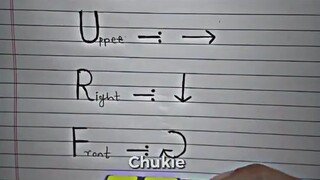 Upper -: →
Right -: ↓
Front -:
Chukie